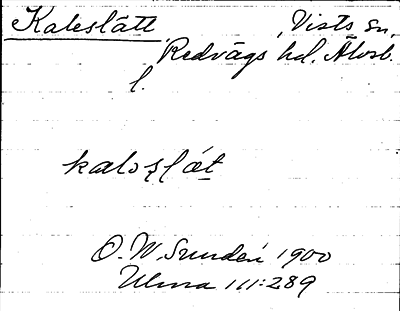 Kaleslätt, Vists sn,
Redvägs hd. Älvsb.
l.
kaloslǽt
O. W. Sundén 1900
Ulma 111:289